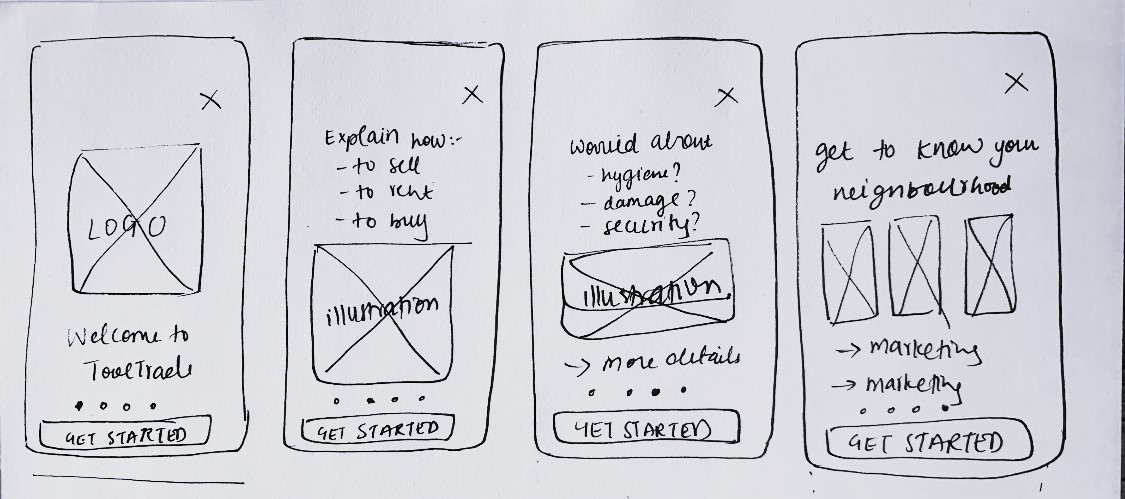 X
LOGO
Welcome to
ToolTrade
GET STARTED
X
Explain how:-
- to sell
- to rent
- to buy
illustration
GET STARTED
X
Worried about
- hygiene?
- damage?
- security?
illustration
→ More details
GET STARTED
X
get to know your
neighbourhood
→ marketing
→ marketing
GET STARTED